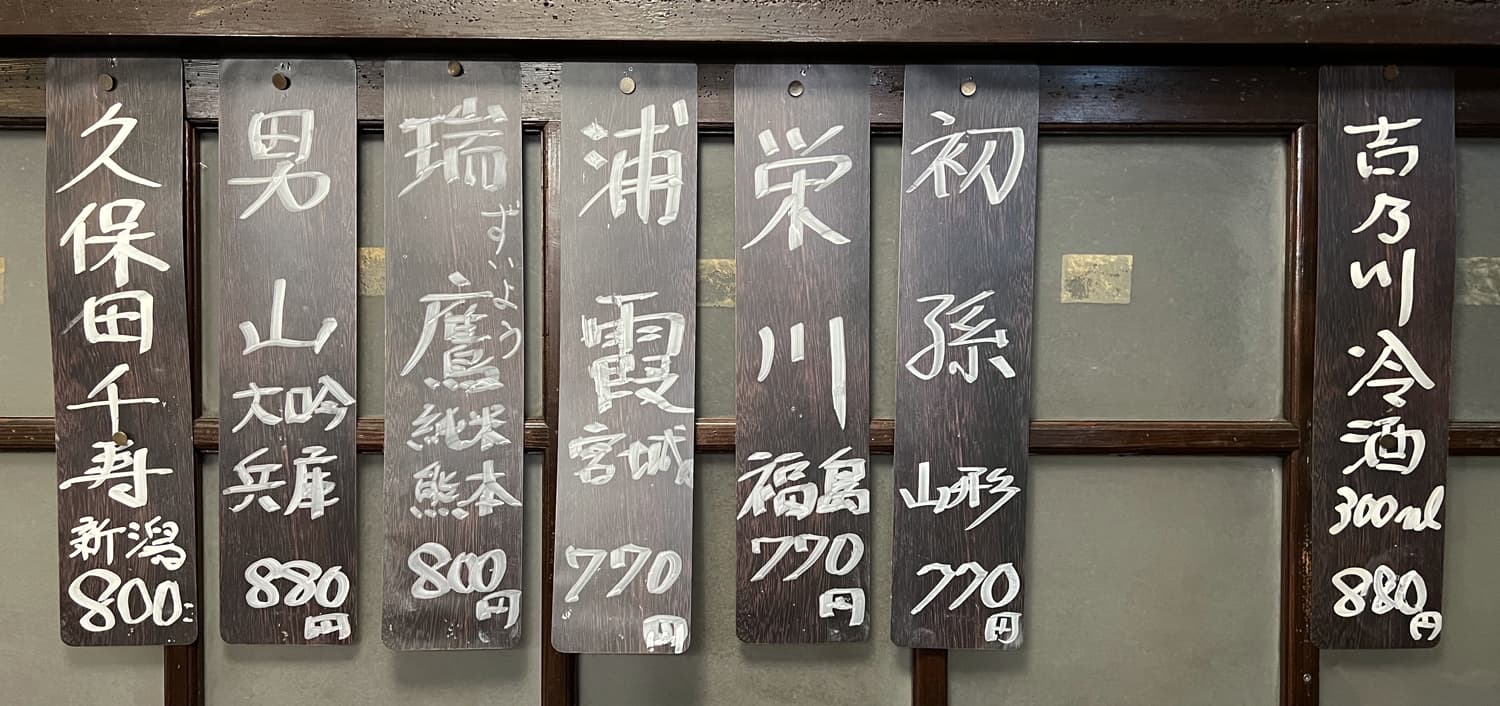 吉乃川冷酒
300ml
880円
初孫
山形
770円
栄川
福島
770円
浦霞
宮城
770円
瑞鷹
ずいよう
純米
熊本
800円
男山
大吟
兵庫
880円
久保田千寿
新潟
800